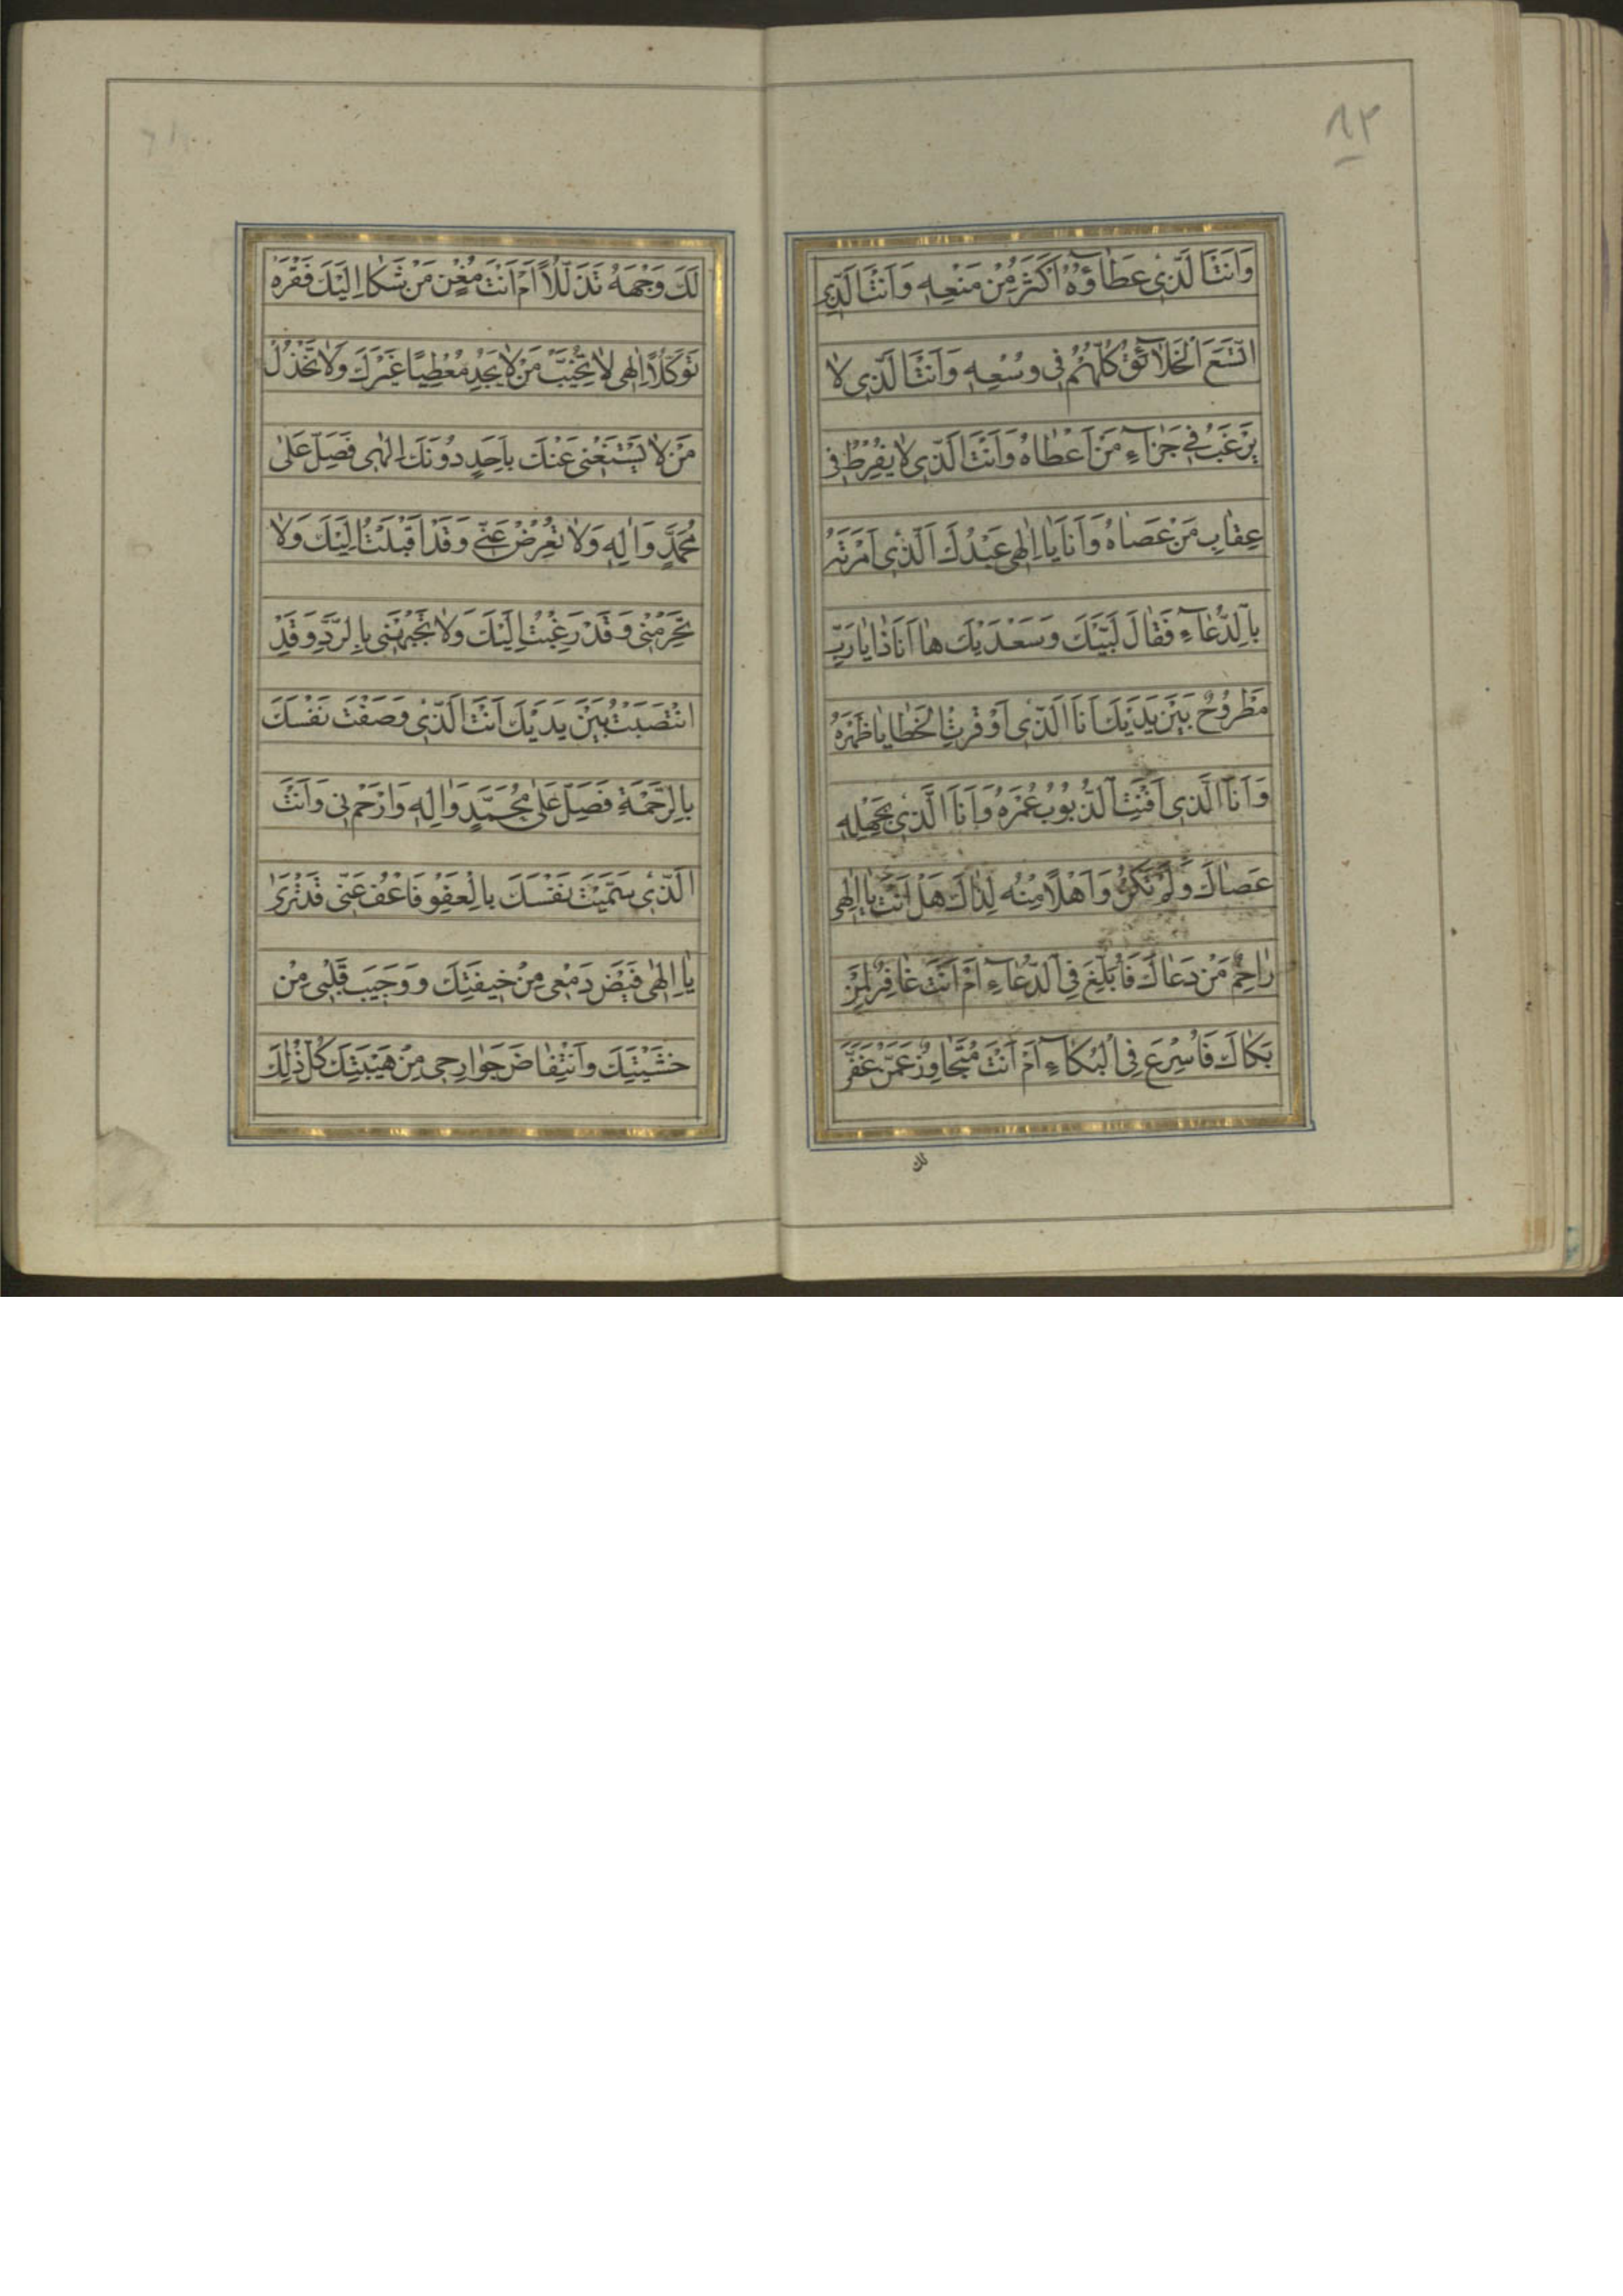 ٨٢
وَاَنْتَ الَّذی عَطٰاۤؤُهُ اَكْثَرُ مِنْ مَنْعِهِ وَاَنْتَ الَّذی
اتَّسَعَ الْخَلاۤئِقُ كُلُّهُمْ فی وُسْعِهِ وَاَنْتَ الَّذی لاٰ
یَرْغَبُ فی جَزٰاۤءِ مَنْ اَعْطٰاهُ وَاَنْتَ الَّذی لاٰ یُفْرِطُ فی
عِقٰابِ مَنْ عَصٰاهُ وَاَنَا یٰا اِلٰهی عَبْدُكَ الَّذی اَمَرْتَهُ
بِالدُّعٰاۤءِ فَقٰالَ لَبَّیْكَ وَسَعْدَیْكَ هٰا اَنَا ذٰا یٰا رَبِّ
مَطْرُوحٌ بَیْنَ یَدَیْكَ اَنَا الَّذی اَوْقَرَتِ الْخَطٰایٰا ظَهْرَهُ
وَاَنَا الَّذی اَفْنَتِ الذُّنُوبُ عُمْرَهُ وَاَنَا الَّذی بِجَهْلِهِ
عَصٰاكَ وَلَمْ تَكُنْ وَاَهْلاً مِنْهُ لِذٰاكَ هَلْ اَنْتَ یٰا اِلٰهی
رٰاحِمٌ مَنْ دَعٰاكَ فَاُبْلِغَ فِی الدُّعٰاۤءِ اَمْ اَنْتَ غٰافِرٌ لِمَنْ
بَكٰاكَ فَاُسْرِعَ فِی الْبُكٰاۤءِ اَمْ اَنْتَ مُتَجٰاوِزٌ عَمَّنْ عَفَّرَ
لك
لَكَ وَجْهَهُ تَذَلُّلاً اَمْ اَنْتَ مُغْنٍ مَنْ شَكٰا اِلَیْكَ فَقْرَهُ
تَوَكُّلاً اِلٰهی لاٰ تُخَیِّبْ مَنْ لاٰ یَجِدُ مُعْطِیًا غَیْرَكَ وَلاٰ تَخْذُلْ
مَنْ لاٰ یَسْتَغْنی عَنْكَ بِاَحَدٍ دُونَكَ اِلٰهی فَصَلِّ عَلیٰ
مُحَمَّدٍ وَاٰلِهِ وَلاٰ تُعْرِضْ عَنّی وَقَدْ اَقْبَلْتُ اِلَیْكَ وَلاٰ
تَحْرِمْنی وَقَدْ رَغِبْتُ اِلَیْكَ وَلاٰ تَجْبَهْنی بِالرَّدِّ وَقَدِ
انْتَصَبْتُ بَیْنَ یَدَیْكَ اَنْتَ الَّذی وَصَفْتَ نَفْسَكَ
بِالرَّحْمَةِ فَصَلِّ عَلیٰ مُحَمَّدٍ وَاٰلِهِ وَارْحَمْنی وَاَنْتَ
الَّذی سَمَّیْتَ نَفْسَكَ بِالْعَفْوِ فَاعْفُ عَنّی قَدْ تَرَیٰ
یٰا اِلٰهی فَیْضَ دَمْعی مِنْ خیفَتِكَ وَوَجیبَ قَلْبی مِنْ
خَشْیَتِكَ وَانْتِفٰاضَ جَوٰارِحی مِنْ هَیْبَتِكَ كُلُّ ذٰلِكَ